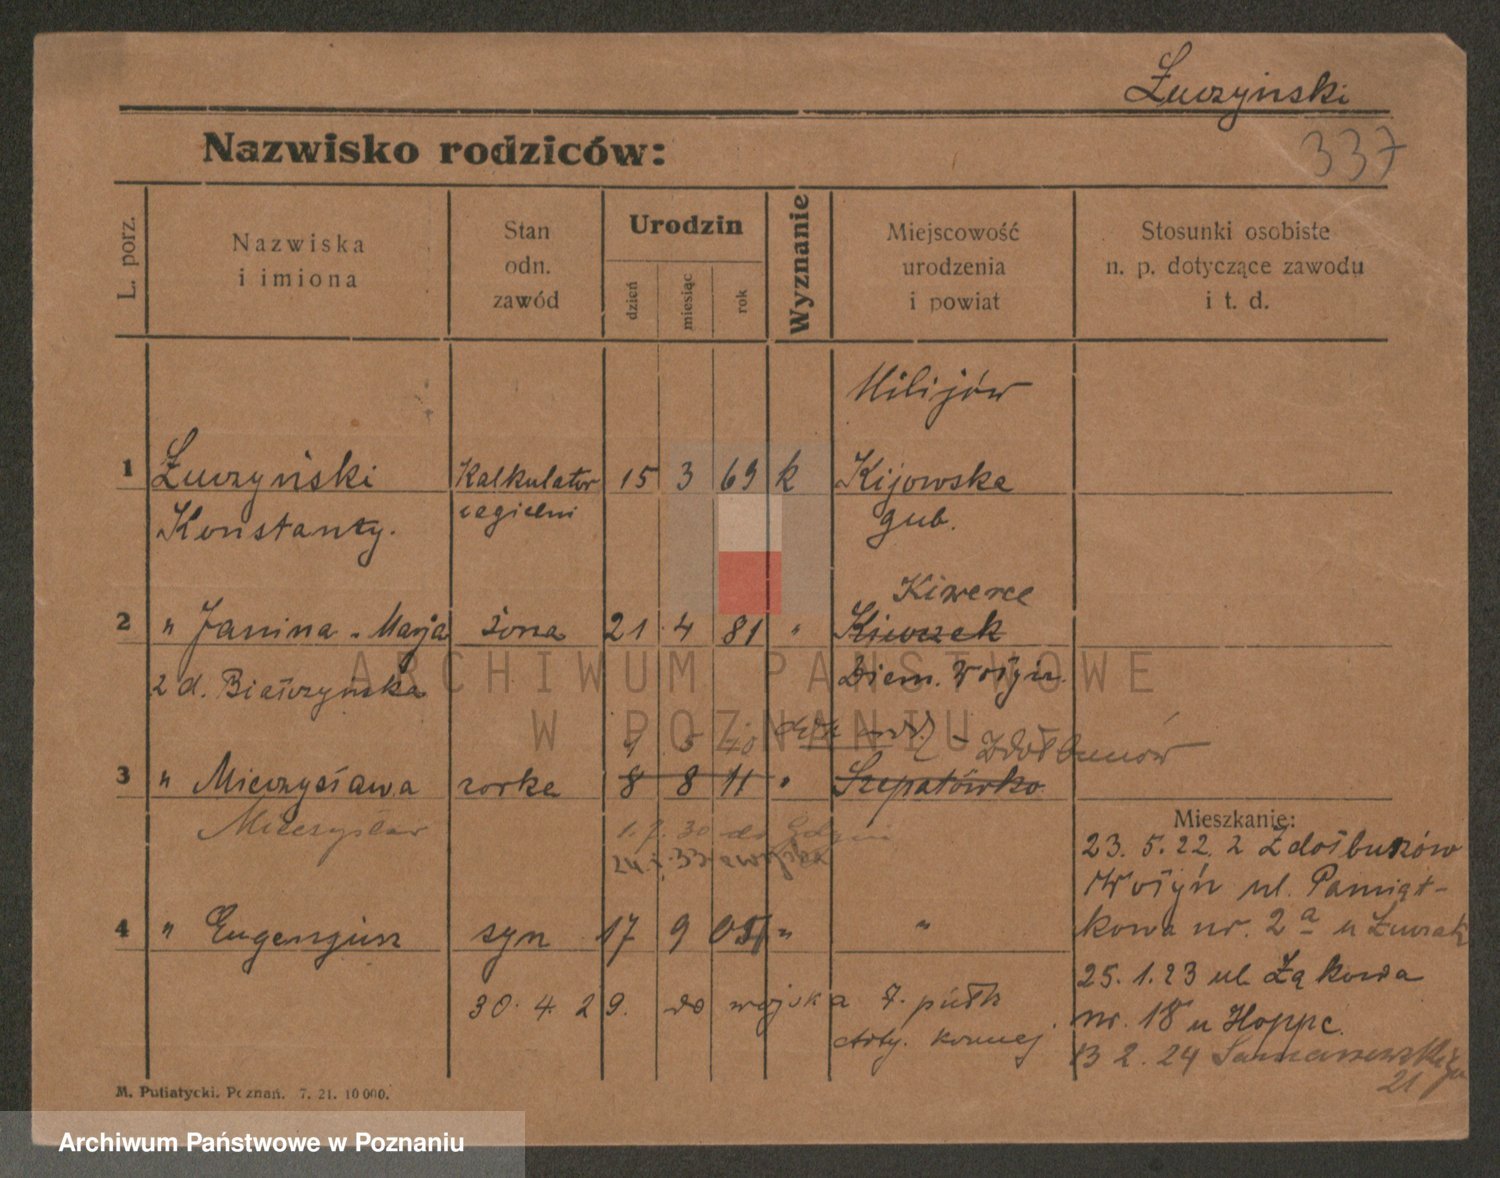 Żuczyński
337
Nazwisko rodziców:
L. porz.
Nazwiska
i imiona
Stan
odn.
zawód
Urodzin
dzień
miesiąc
rok
Wyznanie
Miejscowość
urodzenia
i powiat
Stosunki osobiste
n. p. dotyczące zawodu
i t. d.
Milijów
1 Żuczyński Kalkulator 15 3 69 k Kijowska
Konstanty. cegielni gub.
Kiwerce
2 " Janina - Marja żona 21 4 81 " Kiwczek
2 d. Białczyńska Diem. Wołyń.
9 5 10
Zdołbunów
3 " Mieczysława corka 8 8 11 " Szepatówko
Mieczysław 1. 7. 30 do Gdyni
24. 33 z wojska
Mieszkanie:
23. 5. 22. z Zdołbunów
Wołyń ul. Pamiąt-
4 " Eugenjusz syn 17 9 "
kowa nr. 2a u
25. 1. 23 ul. Łąkowa
30. 4. 29. do wojska 7. pułk
nr. 18 u Hoppe.
arty. konnej
13 2. 24
21
M. Putiatycki. Poznań. 7. 21. 10 000.
ARCHIWUM PAŃSTWOWE
W POZNANIU
Archiwum Państwowe w Poznaniu